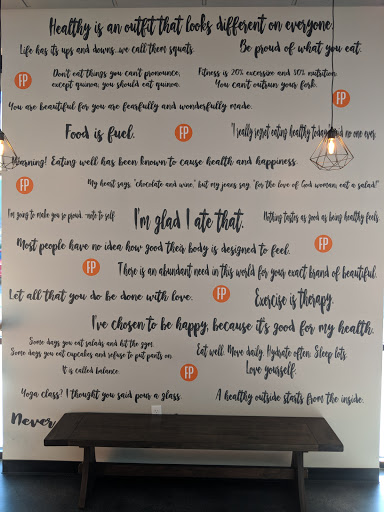 Healthy is an outfit that looks different on everyone.
Life has its ups and downs...we call them squats.
Be proud of what you eat.
Don't eat things you can't pronounce,
except quinoa, you should eat quinoa.
Fitness is 20% excersize and 80% nutrition.
You can't outrun your fork.
FP
FP
You are beautiful for you are fearfully and wonderfully made.
Food is fuel.
FP
"I really regret eating healthy today," said no one ever.
Warning! Eating well has been known to cause health and happiness.
FP
My heart says, "chocolate and wine," but my jeans say, "for the love of God woman, eat a salad!"
I'm going to make you so proud. -note to self
I'm glad I ate that.
Nothing tastes as good as being healthy feels.
Most people have no idea how good their body is designed to feel.
FP
FP
There is an abundant need in this world for your exact brand of beautiful.
Let all that you do be done with love.
FP
Exercise is therapy.
I've chosen to be happy, because it's good for my health.
Some days you eat salads and hit the gym.
Some days you eat cupcakes and refuse to put pants on.
It is called balance.
FP
Eat well. Move daily. Hydrate often. Sleep lots.
Love yourself.
Yoga class? I thought you said pour a glass.
A healthy outside starts from the inside.
Never